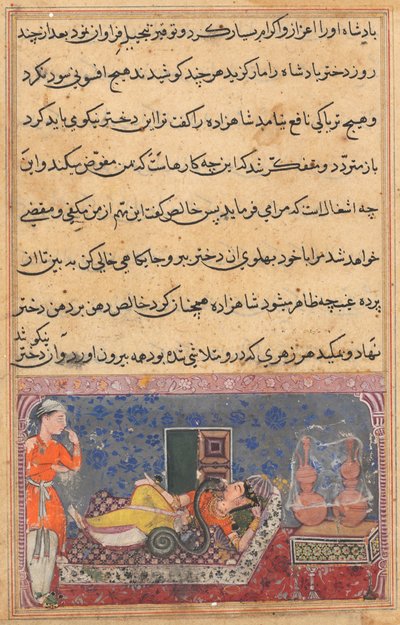 پادشاه او را اعزاز و اکرام بسیار کرد و توقیر تبجیل فراوان نمود بعد از چند
روز دختر پادشاه را مار گزید هر چند کوشیدند هیچ افسونی سود نکرد
و هیچ تریاکی نافع نیامد شاهزاده را گفت ترا این دختر نیکو می باید کرد
باز متردد و متفکر شد که این چه کارهاست که بمن مفوض میکند و این
چه اشغال است که مرا می فرماید پس خالص گفت این مهم از من مکفی و مقضی
خواهد شد مرا با خود بهلوی ان دختر ببر و جایکاهی خالی کن به بین تا از
پرده غیب چه ظاهر میشود شاهزاده همچنان کرد خالص دهن بر دهن دختر
نهاد و بمکید هر زهری که درو متلاشی شده بود همه بیرون اورد و آن دختر
نیکو شد